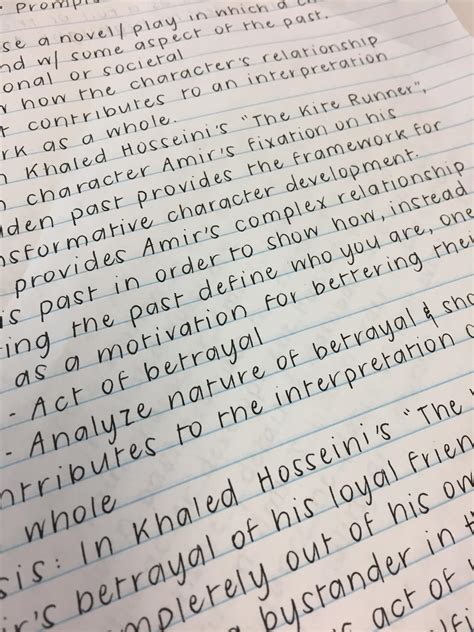 Prompt
se a novel/play in which a
nd w/ some aspect of the past.
onal or societal
how the character's relationship
t contributes to an interpretation
rk as a whole.
n Khaled Hosseini's "The Kite Runner",
n character Amir's fixation on his
dden past provides the framework for
nsformative character development.
provides Amir's complex relationship
is past in order to show how, instead
ing the past define who you are, one
as a motivation for bettering their
- Act of betrayal
- Analyze nature of betrayal & sh
ntributes to the interpretation o
whole
sis: In Khaled Hosseini's "The
ir's betrayal of his loyal frien
mpletely out of his ow
bystander in t
s act of